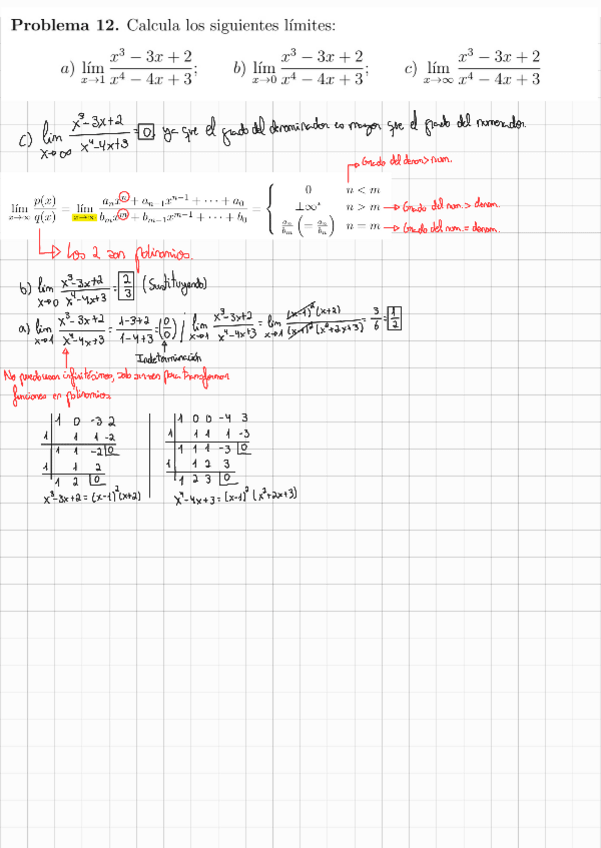 Problema 12. Calcula los siguientes límites:
a) lím x→1 (x³ − 3x + 2)/(x⁴ − 4x + 3); b) lím x→0 (x³ − 3x + 2)/(x⁴ − 4x + 3); c) lím x→∞ (x³ − 3x + 2)/(x⁴ − 4x + 3)
c) lim x→∞ (x³-3x+2)/(x⁴-4x+3) = 0, ya que el grado del denominador es mayor que el grado del numerador.
→ Grado del denom > num.
lím x→∞ p(x)/q(x) = lím x→∞ (aₙxⁿ + aₙ₋₁xⁿ⁻¹ + ··· + a₀)/(bₘxᵐ + bₘ₋₁xᵐ⁻¹ + ··· + b₀) = {
0 n < m
±∞* n > m → Grado del num. > denom.
aₙ/bₘ (= aₙ/bₙ) n = m → Grado del num. = denom.
↳ Los 2 son polinomios.
b) lim x→0 (x³-3x+2)/(x⁴-4x+3) = 2/3 (Sustituyendo)
a) lim x→1 (x³-3x+2)/(x⁴-4x+3) = (1-3+2)/(1-4+3) = (0/0) / lim x→1 (x³-3x+2)/(x⁴-4x+3) = lim x→1 (x-1)²(x+2)/(x-1)²(x²+2x+3) = 3/6 = 1/2
Indeterminación
No puedo usar infinitésimos, solo sirven para transformar
funciones en polinomios
1 0 -3 2
1 1 1 -2
1 1 -2 0
1 1 2
1 2 0
x³-3x+2 = (x-1)²(x+2)
1 0 0 -4 3
1 1 1 1 -3
1 1 1 -3 0
1 1 2 3
1 2 3 0
x⁴-4x+3 = (x-1)² (x²+2x+3)